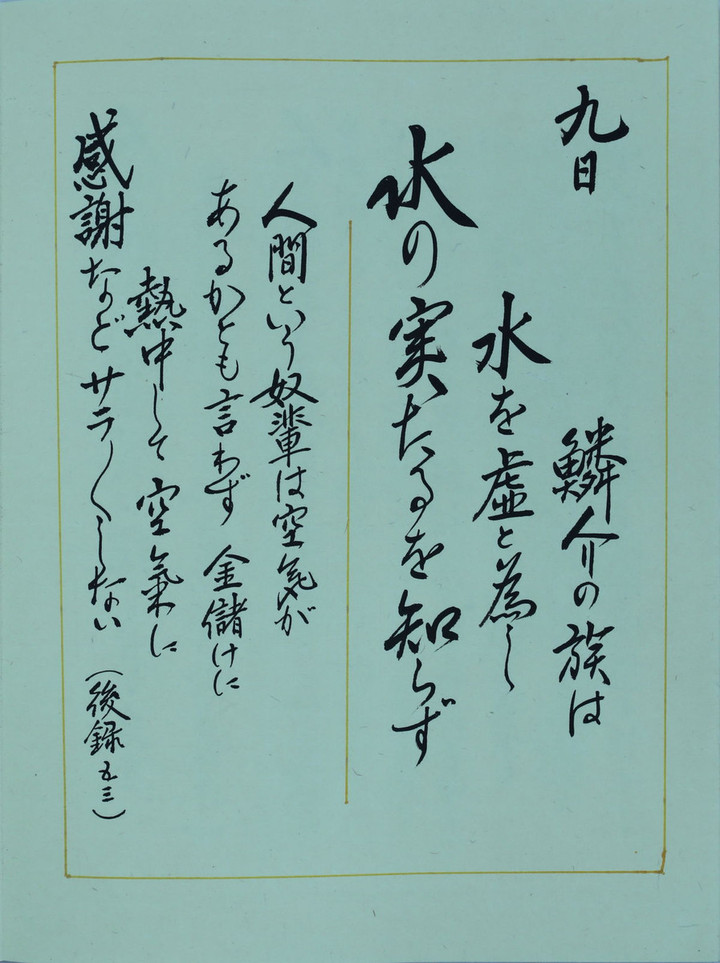 九日
鱗介の族は
水を虚と為し
水の実たるを知らず
人間という奴輩は空気が
あるかとも言わず 金儲けに
熱中して 空氣に
感謝など サラ〳〵しない
(後録 五三)